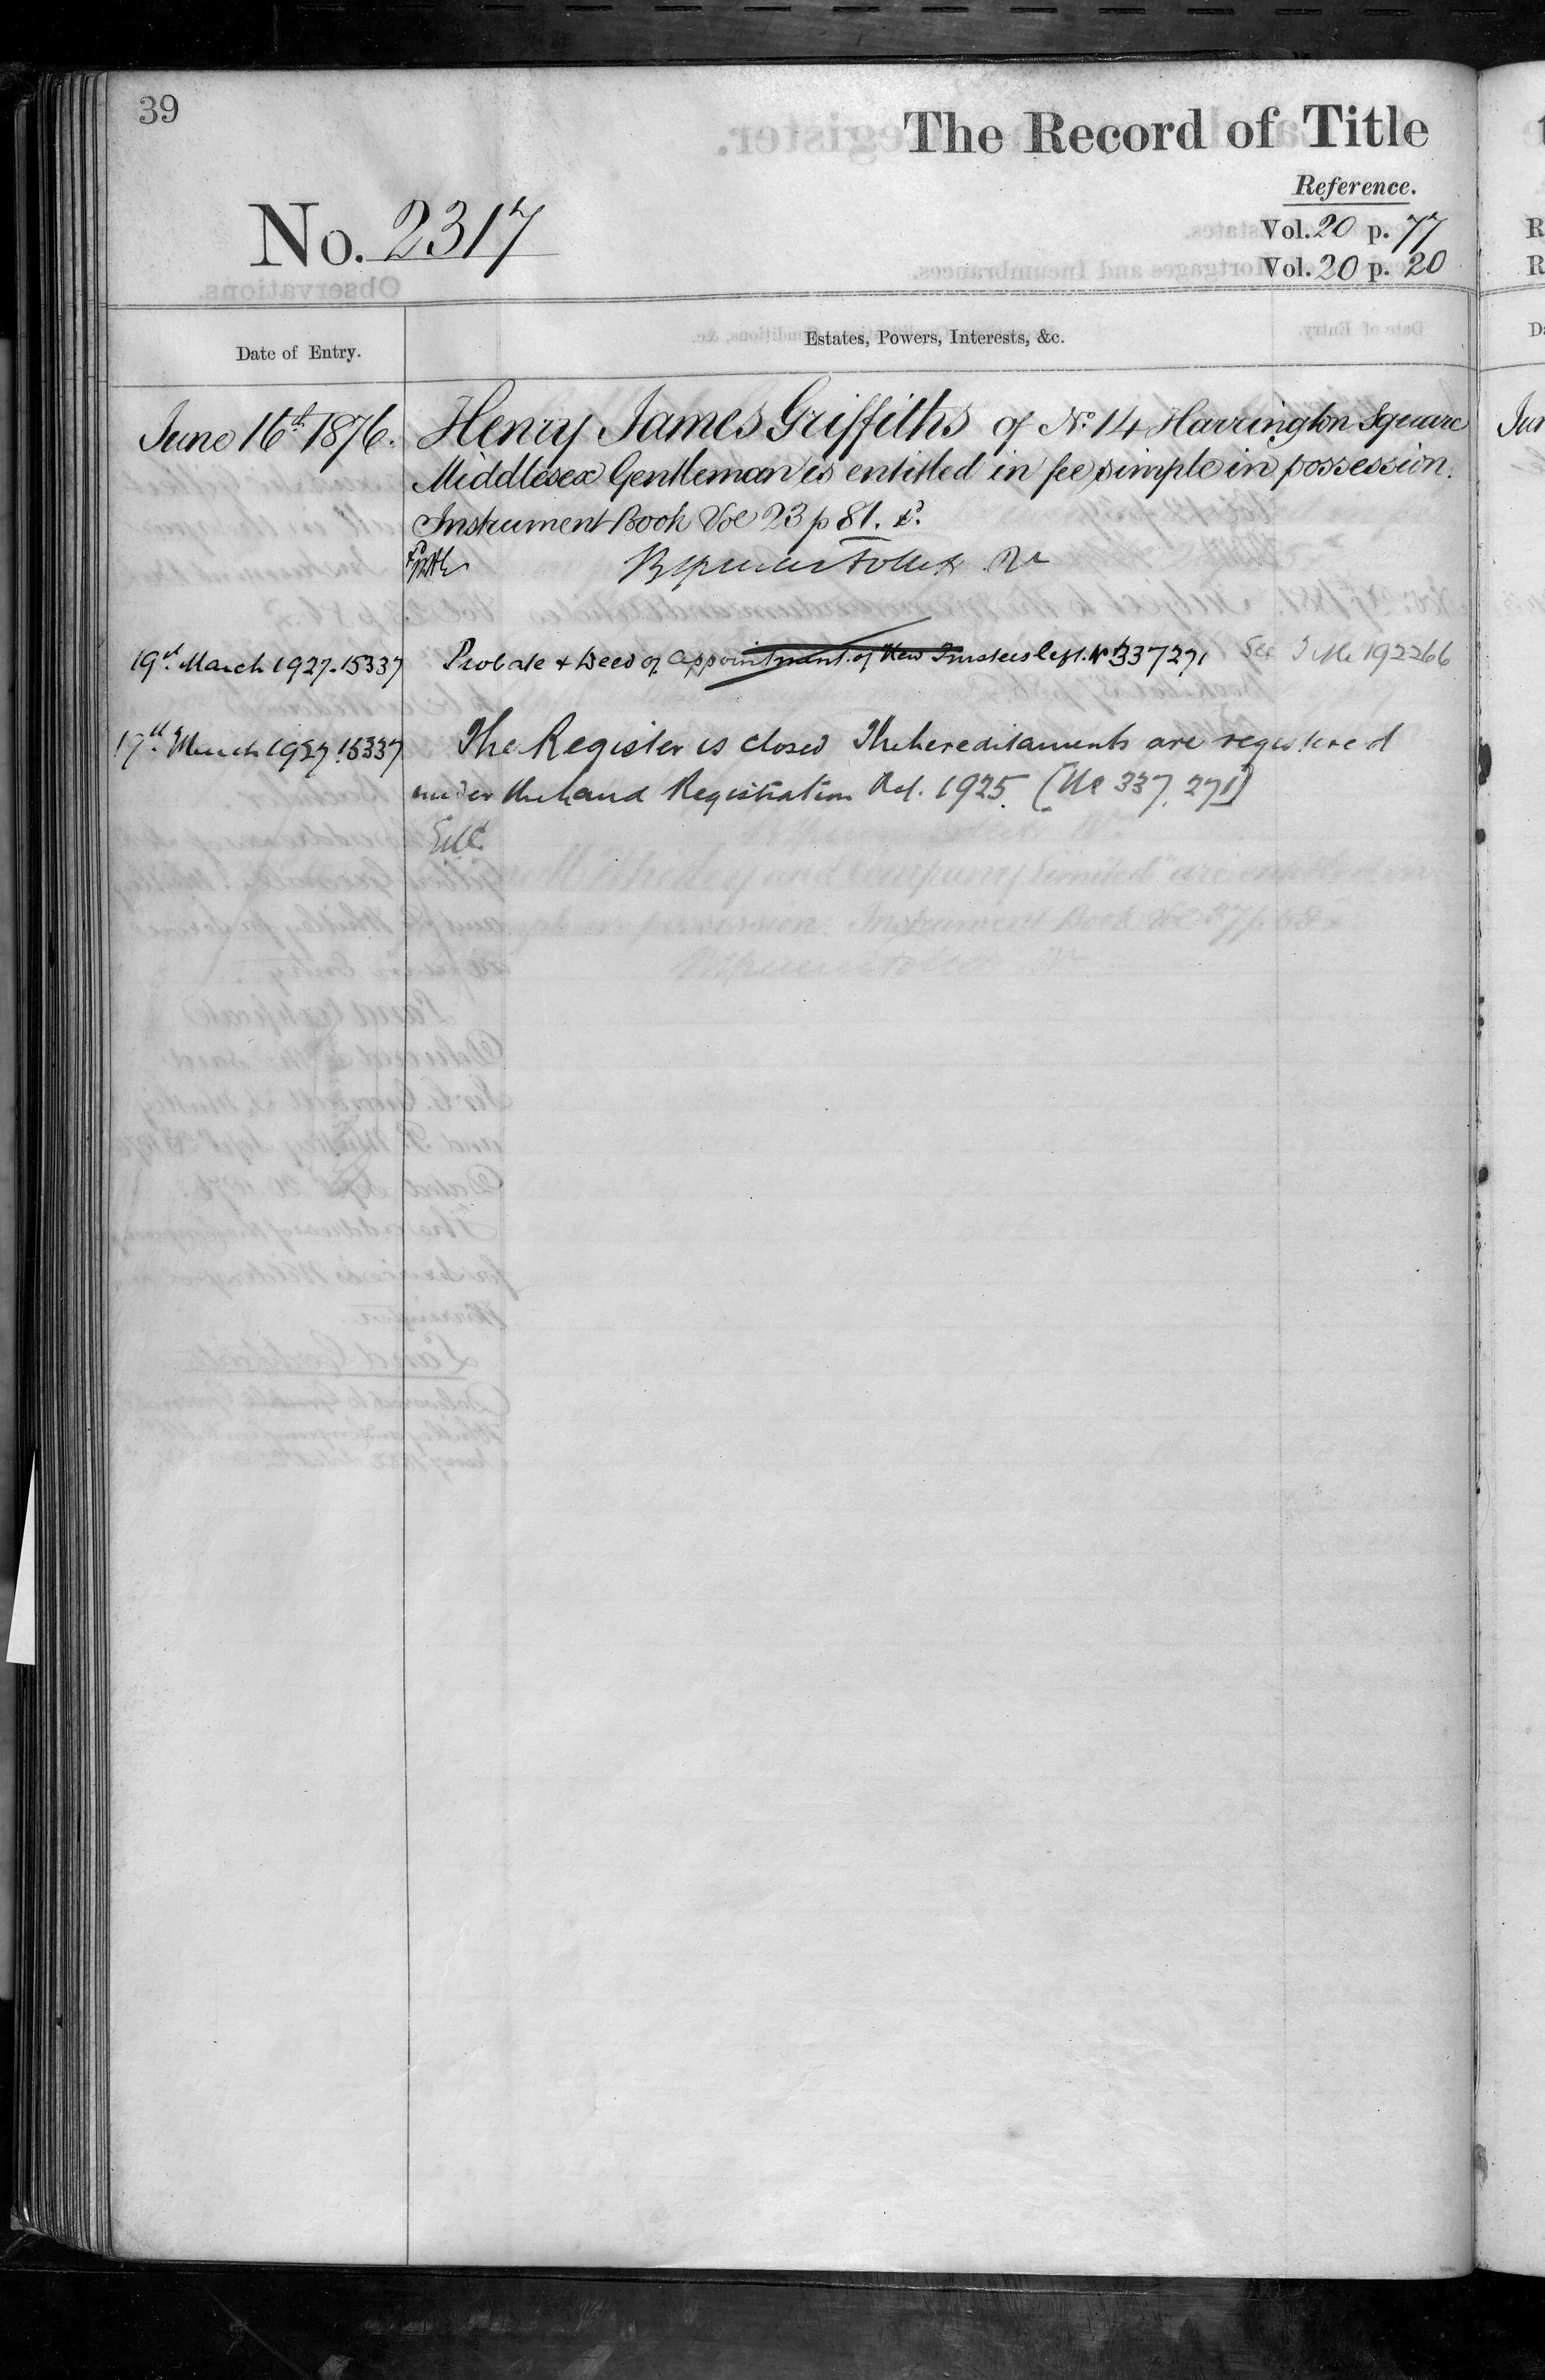 39
The Record of Title
Reference.
No. 2317
Vol. 20 p. 77
Vol. 20 p. 20
Date of Entry.
Estates, Powers, Interests, &c.
June 16th 1876.
Henry James Griffiths of No. 14 Harrington Square
Middlesex Gentleman is entitled in fee simple in possession.
Instrument Book Vol 23 p 81.
19th March 1927. 15337
Probate & Deed of Appointment of New Trustees left. No 337271 See Title 192266
17th March 1927. 15337
The Register is closed The hereditaments are registered
under the Land Registration Act. 1925. (No 337,271)